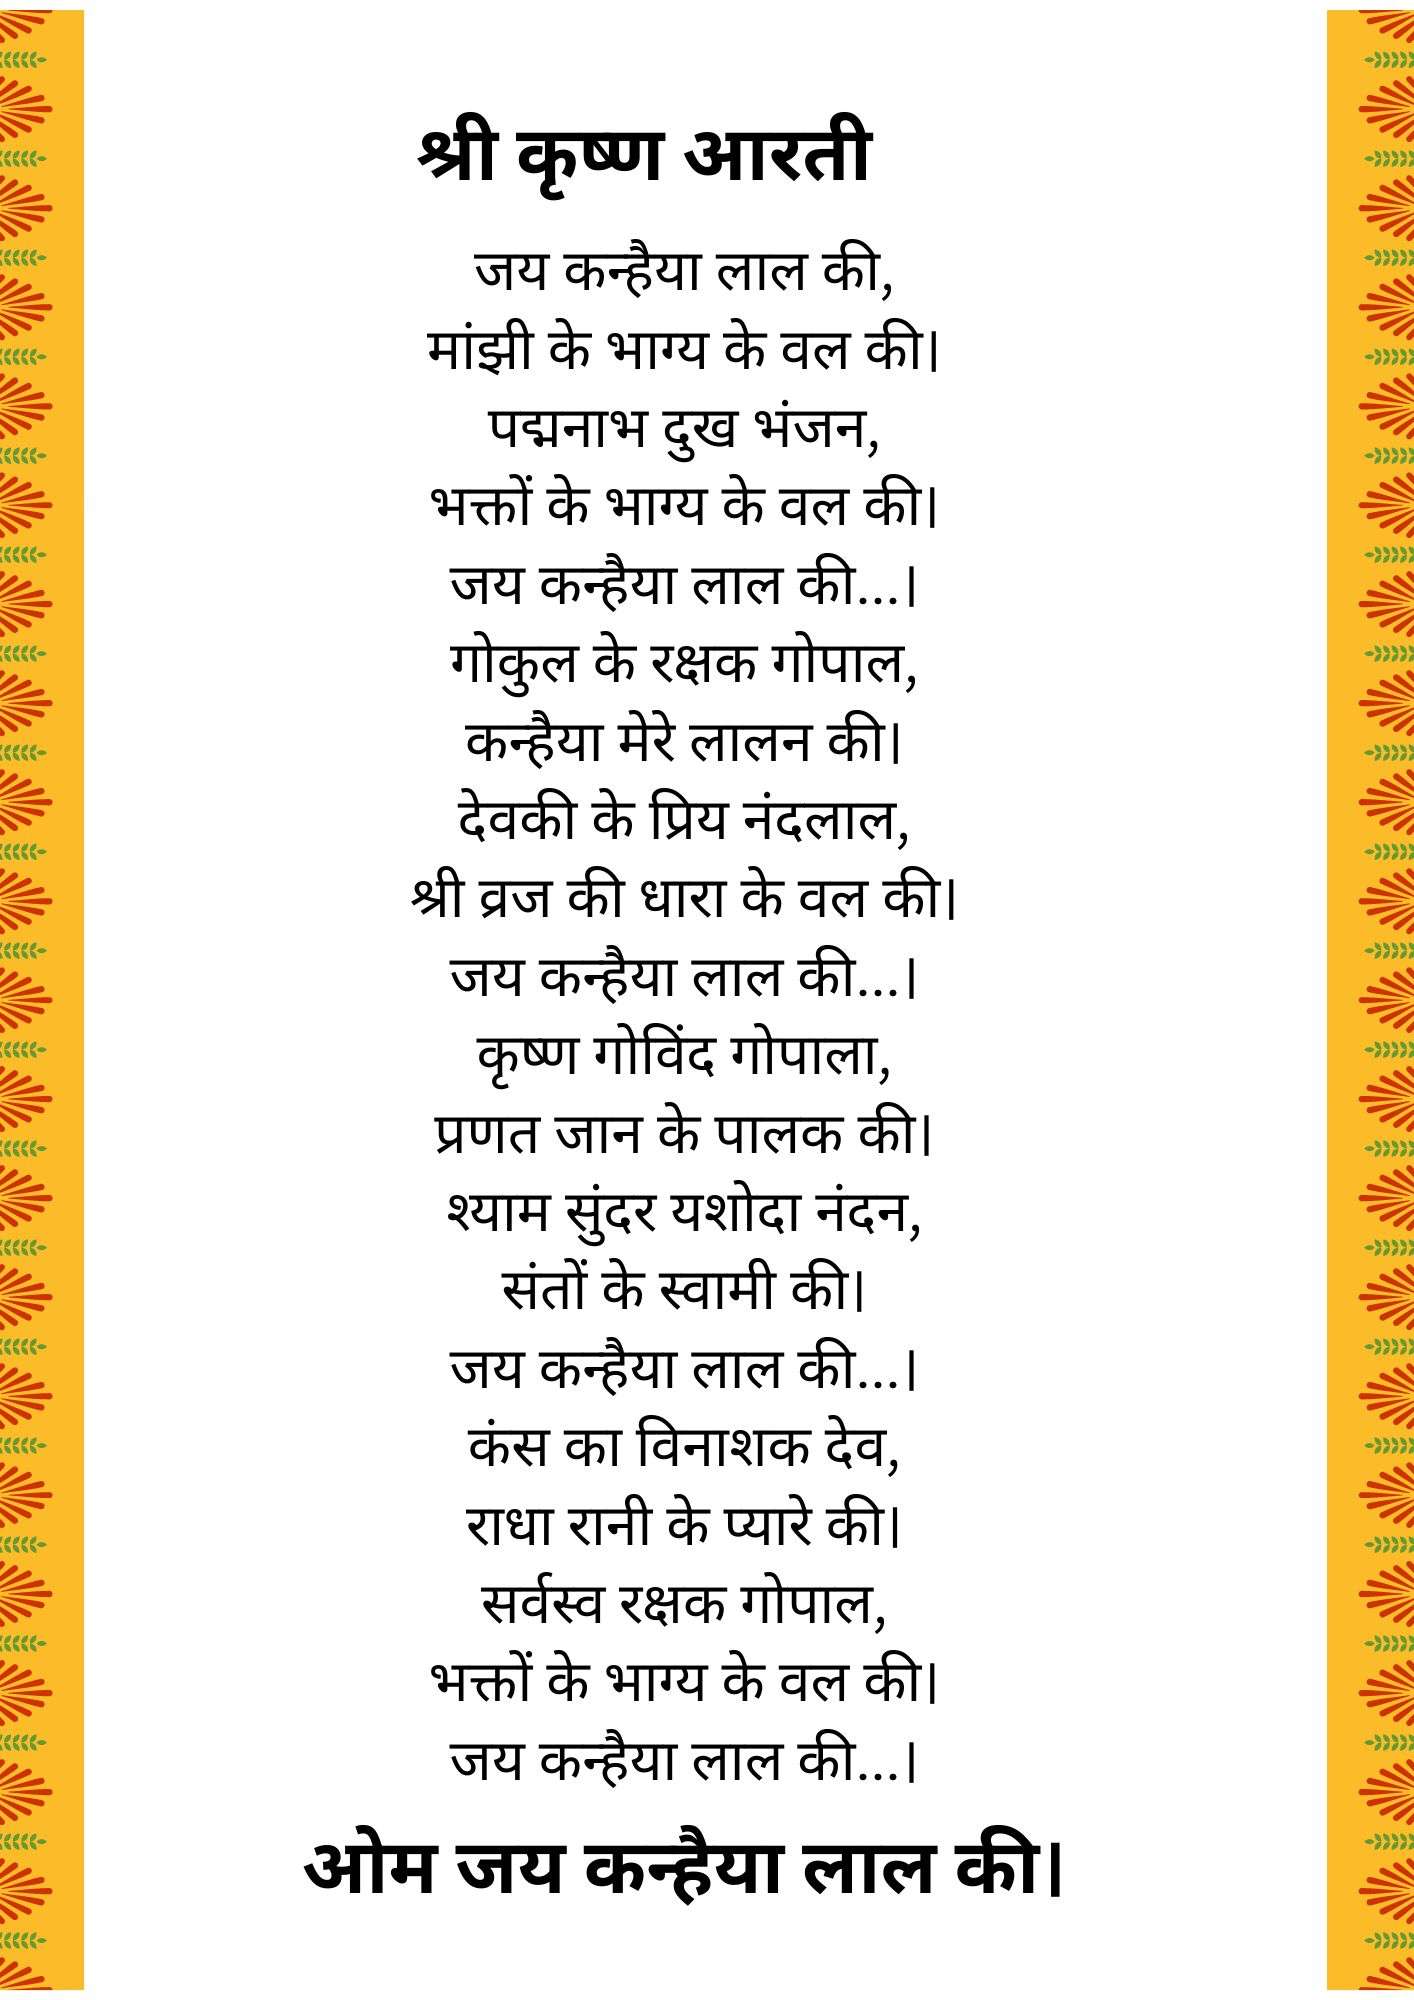 श्री कृष्ण आरती
जय कन्हैया लाल की,
मांझी के भाग्य के वल की।
पद्मनाभ दुख भंजन,
भक्तों के भाग्य के वल की।
जय कन्हैया लाल की...।
गोकुल के रक्षक गोपाल,
कन्हैया मेरे लालन की।
देवकी के प्रिय नंदलाल,
श्री व्रज की धारा के वल की।
जय कन्हैया लाल की...।
कृष्ण गोविंद गोपाला,
प्रणत जान के पालक की।
श्याम सुंदर यशोदा नंदन,
संतों के स्वामी की।
जय कन्हैया लाल की...।
कंस का विनाशक देव,
राधा रानी के प्यारे की।
सर्वस्व रक्षक गोपाल,
भक्तों के भाग्य के वल की।
जय कन्हैया लाल की...।
ओम जय कन्हैया लाल की।